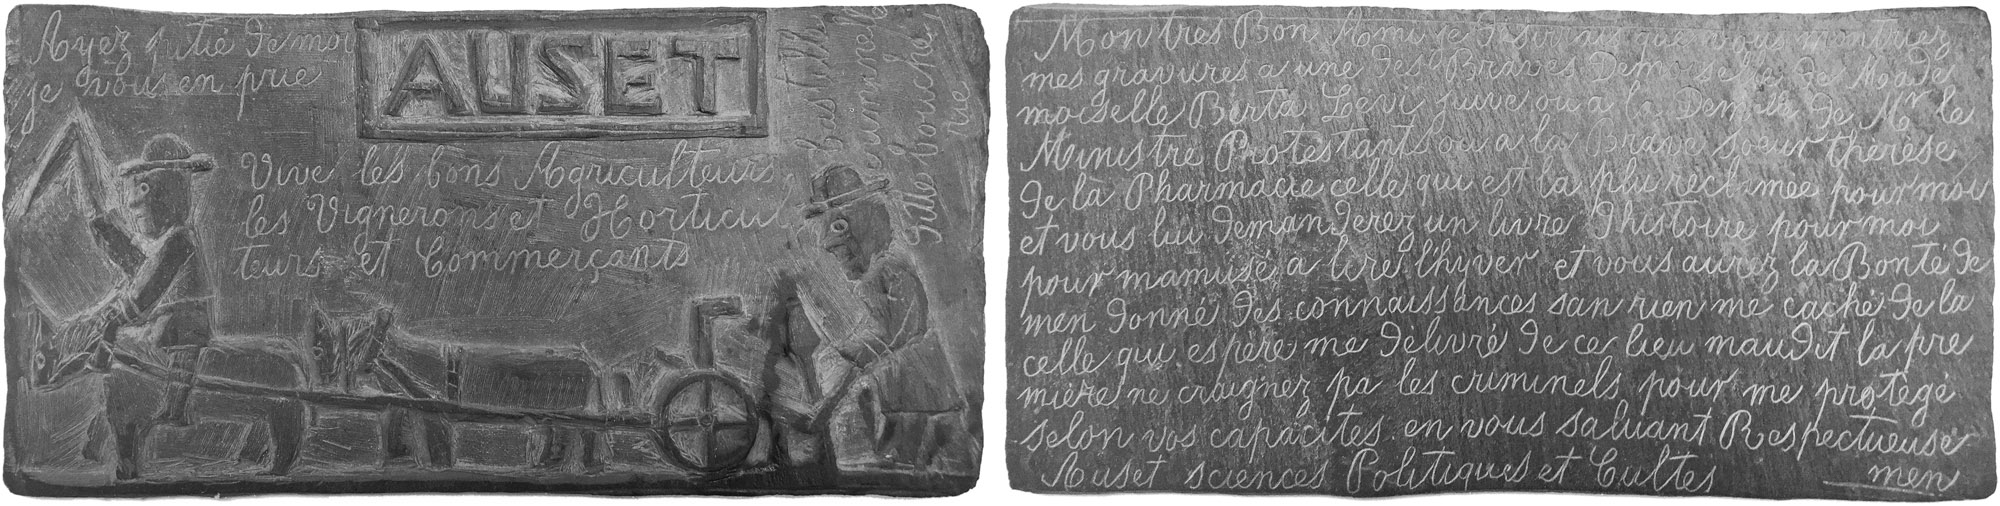 Ayez pitié de moi
je vous en prie
AUSET
Vive les bons Agriculteurs
les Vignerons et Horticul
teurs et Commerçants
bastille
criminnel
fille bouche
rue
Mon tres Bon Ami je desirais que vous montriez
mes gravures a une des Braves Demoiselle de Made
moiselle Berta Levi juive ou a la Demoi de Mr le
Ministre Protestant ou a la Brave soeur thérèse
de la Pharmacie celle qui est la plu réclamée pour moi
et vous lui demanderez un livre d'histoire pour moi
pour mamusé a lire lhyver et vous aurez la Bonté de
men donné des connaissances san rien me caché de la
celle qui espère me délivré de ce lieu maudit la pre
mière ne craignez pa les criminels pour me protégé
selon vos capacités en vous saluant Respectueuse
Auset sciences Politiques et Cultes men